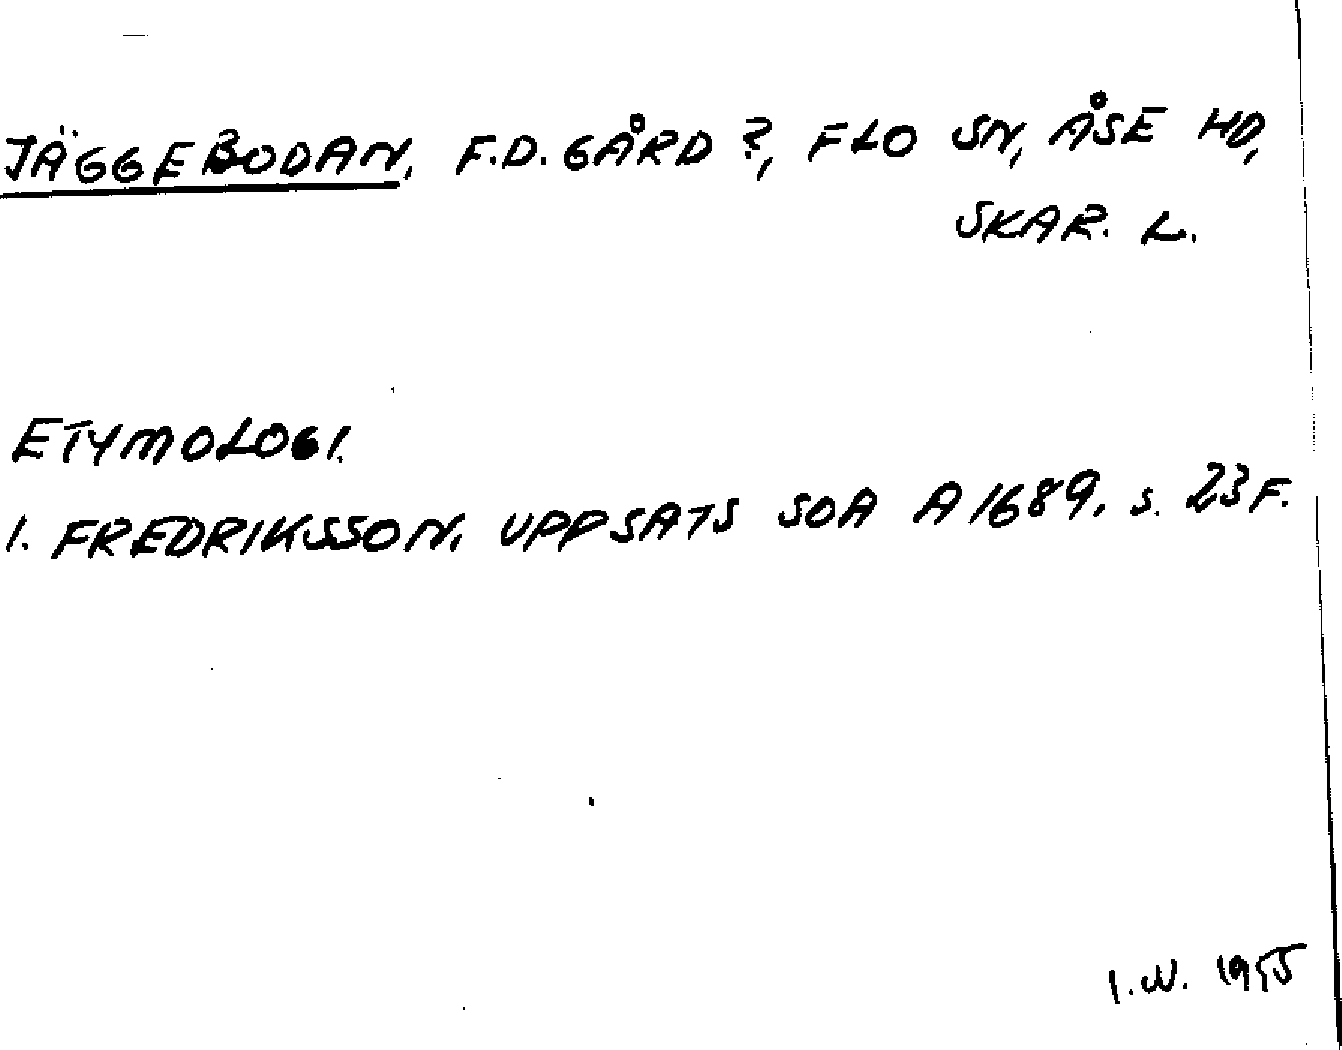 JÄGGEBODAN, F.D. GÅRD?, FLO SN, ÅSE HD,
SKAR. L.
ETYMOLOGI.
I. FREDRIKSSON, UPPSATS SOA A 1689. S. 23 F.
I.W. 1955